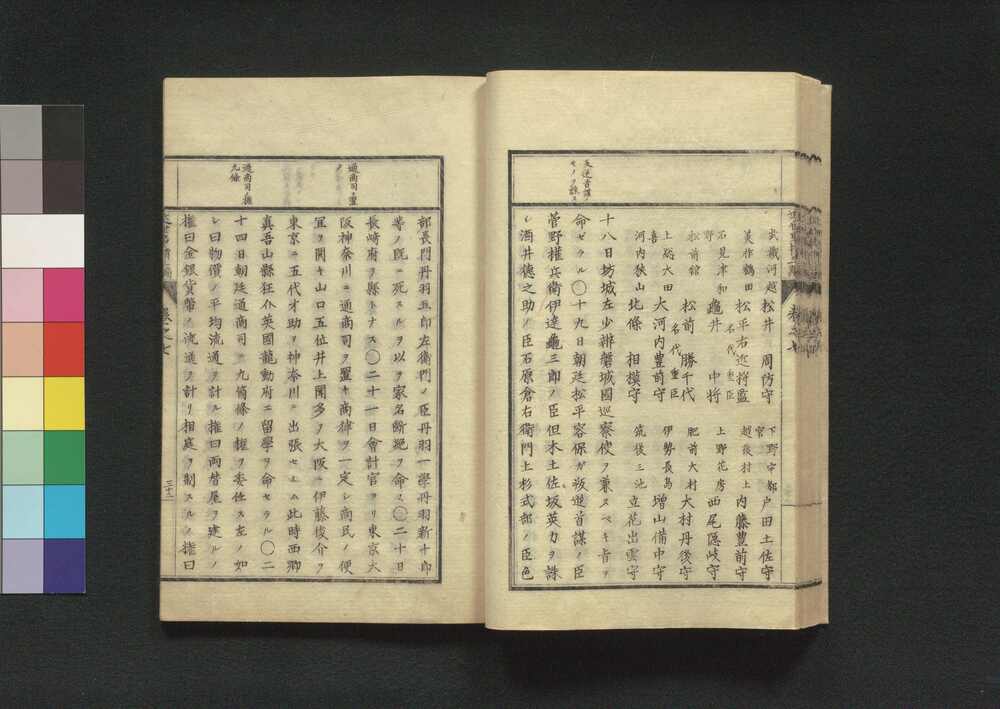 反逆首謀ノモノヲ誅ス
武藏河越 松井 周防守 下野宇都宮 戸田土佐守
美作鶴田 松平右近將監 名代重臣 越後村上 内藤豊前守
石見津和野 龜井 中將 上野花房 西尾隱岐守
松前舘 松前 勝千代 名代重臣 肥前大村 大村丹後守
上総大田喜 大河内豊前守 伊勢長島 增山備中守
河内狹山 北條 相模守 筑後三池 立花出雲守
十八日坊城左少辨磐城國巡察使ヲ兼スベキ旨ヲ
命セラル〇十九日朝廷松平容保ガ叛逆首謀ノ臣
菅野權兵衛伊達龜三郎ノ臣但木土佐坂英力ヲ誅
シ酒井德之助ノ臣石原倉右衛門上杉式部ノ臣色
通商司ヲ置ク
通商司ノ權九條
部長門丹羽五郎左衛門ノ臣丹羽一學丹羽新十郎
等ノ既ニ死スルヲ以テ家名斷絶ヲ命ス〇二十日
長崎府ヲ縣トナス〇二十一日會計官ヨリ東京大
阪神奈川ニ通商司ヲ置キ商律ヲ一定シ商民ノ便
宜ヲ開キ山口五位井上聞多ヲ大阪ニ伊藤俊介ヲ
東京ニ五代才助ヲ神奈川ニ出張セシム此時西鄕
眞吾山縣狂介英國龍動府ニ留學ヲ命セラル〇二
十四日朝廷通商司ニ九箇條ノ權ヲ委任ス左ノ如
シ曰物價ノ平均流通ヲ計ル權曰両替屋ヲ建ルノ
權曰金銀貨幣ノ流通ヲ計リ相庭ヲ制スルノ權曰
三十三